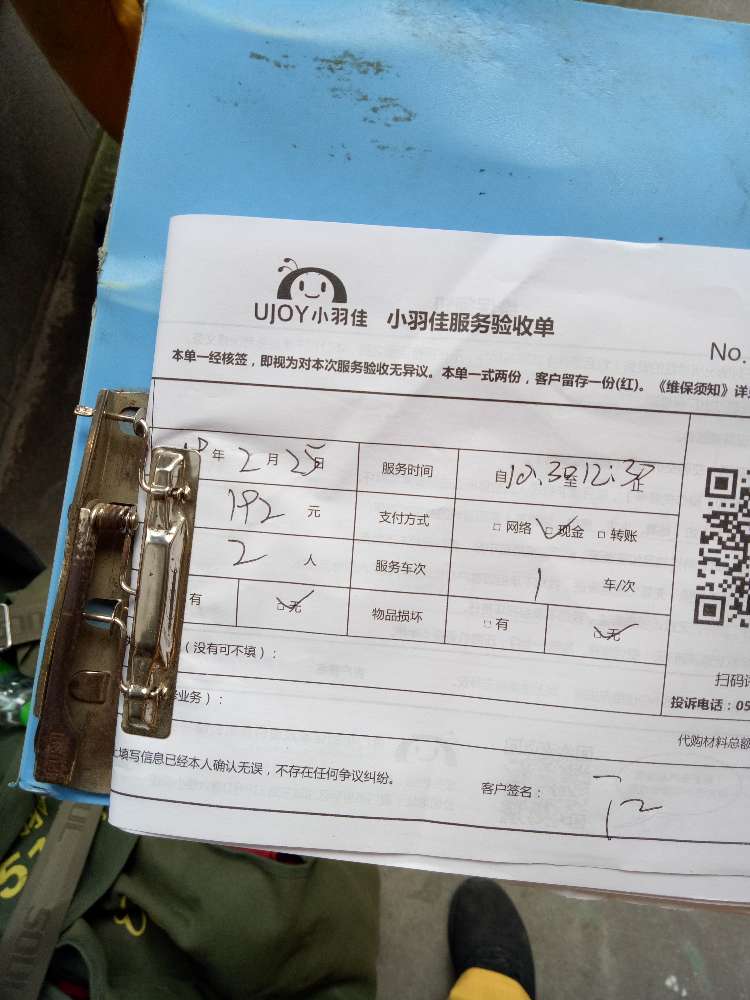 UJOY小羽佳 小羽佳服务验收单
No.
本单一经核签，即视为对本次服务验收无异议。本单一式两份，客户留存一份(红)。《维保须知》详
年 2 月 25 日 服务时间 自10:30至12:30
192 元 支付方式 □ 网络 ☑ 现金 □ 转账
2 人 服务车次 1 车/次
有 ☑ 无 物品损坏 □ 有 ☑ 无
（没有可不填）：
扫码
业务）：
投诉电话：05
代购材料总额
填写信息已经本人确认无误，不存在任何争议纠纷。 客户签名：